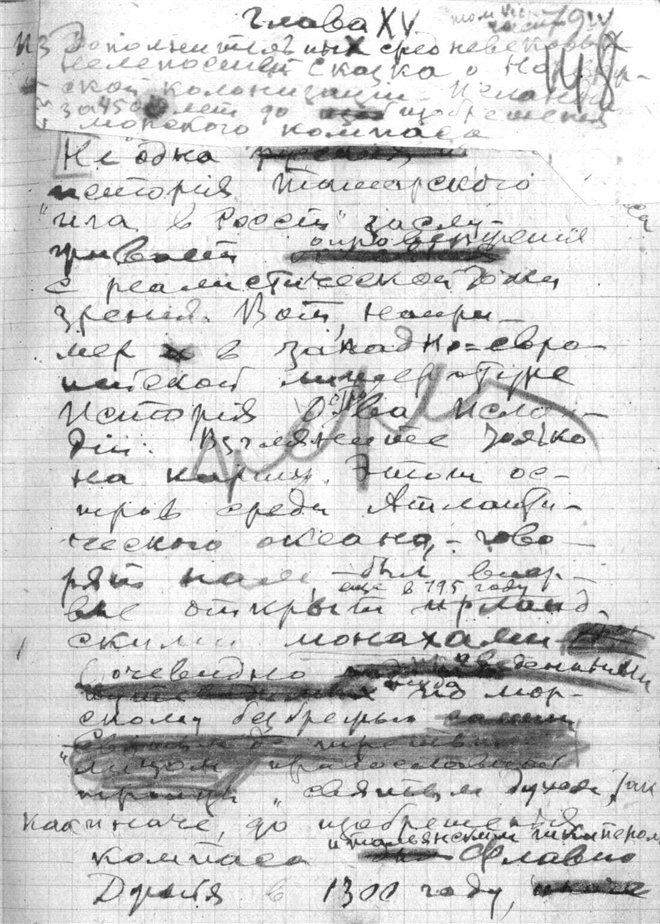 Глава XV
Из дополнительных средневековых
нелепостей сказка о норман-
ской колонизации Исландии
за 450 лет до изобретения
морского компаса
Не одна
история татарского
"ига в России" заслу-
живает опровержения
с реалистической точки
зрения. Вот, напри-
мер в западно-евро-
пейской литературе
История О-ва Ислан-
дии. Взгляните только
на карту. Этот ос-
тров среди Атланти-
ческого океана, - гово-
рят нам, - был впер-
еще в 795 году
вые открыт ирланд-
скими монахами
очевидно приведенными
туда по мор-
скому безбрежью
святым духом, так
как иначе, до изобретения
итальянским шкипером
компаса Флавио
Джойя в 1300 году,